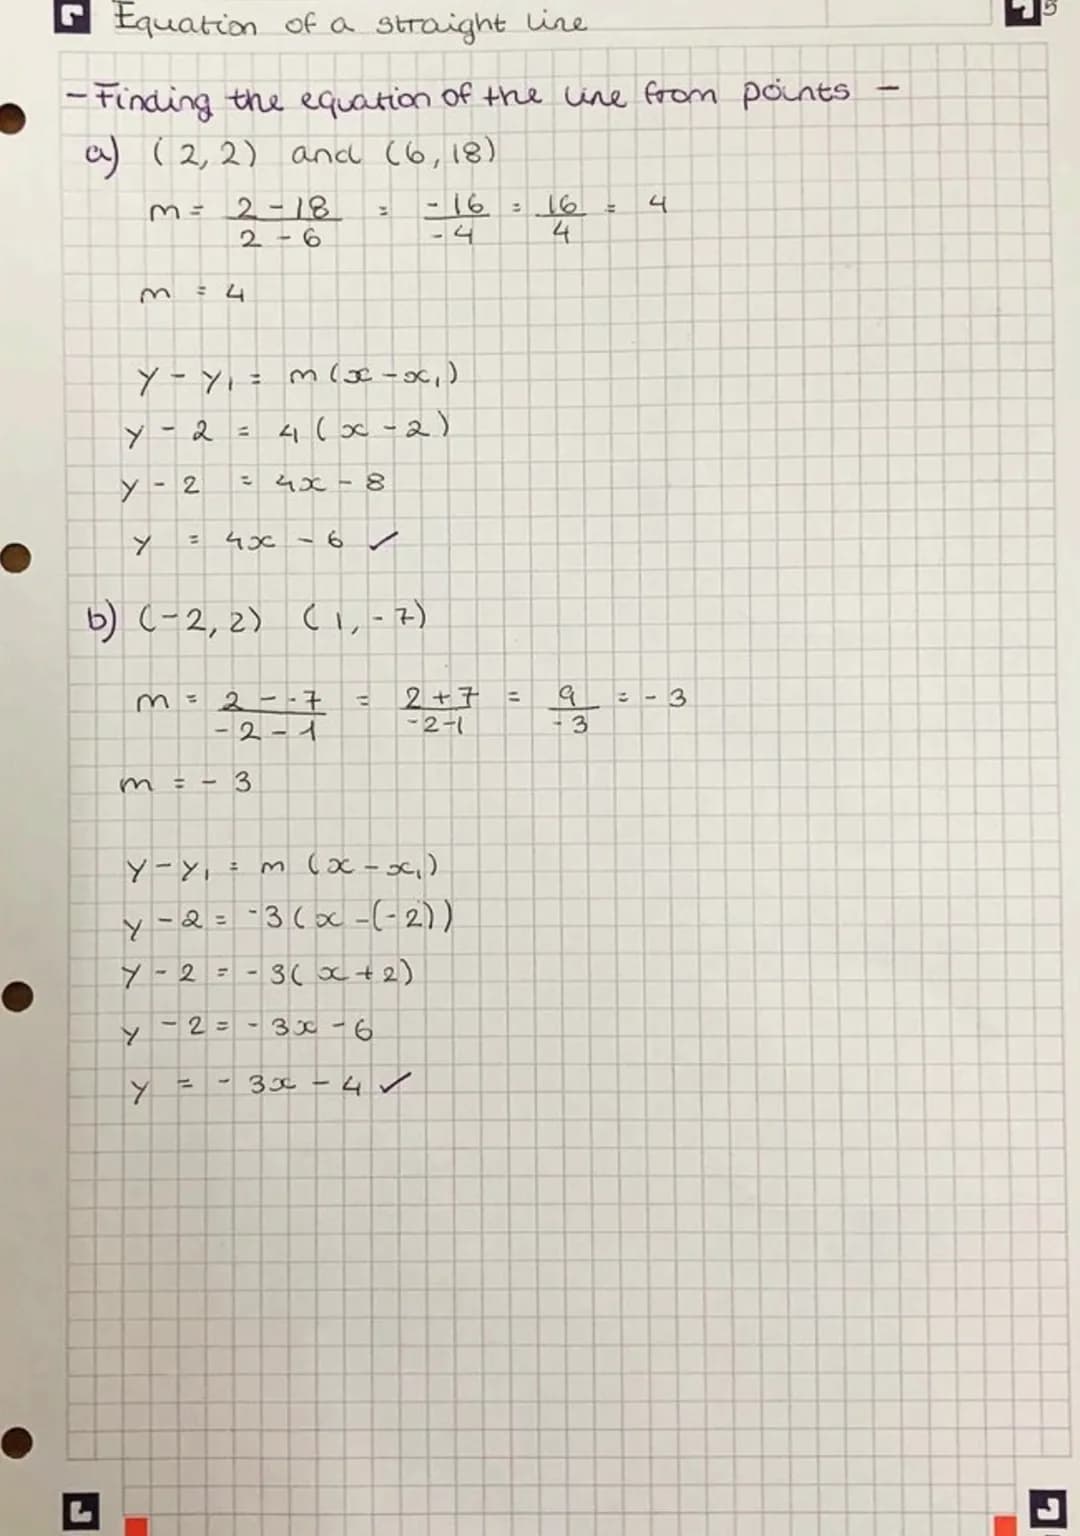 Equation of a straight line
5
- Finding the equation of the line from points -
a) (2,2) and (6,18)
m = 2 - 18 / 2 - 6 = -16 / -4 = 16 / 4 = 4
m = 4
y - y₁ = m(x - x₁)
y - 2 = 4(x - 2)
y - 2 = 4x - 8
y = 4x - 6 ✓
b) (-2,2) (1,-7)
m = 2 - -7 / -2 - 1 = 2 + 7 / -2 - 1 = 9 / -3 = -3
m = -3
y - y₁ = m (x - x₁)
y - 2 = -3(x - (-2))
y - 2 = -3(x + 2)
y - 2 = -3x - 6
y = -3x - 4 ✓